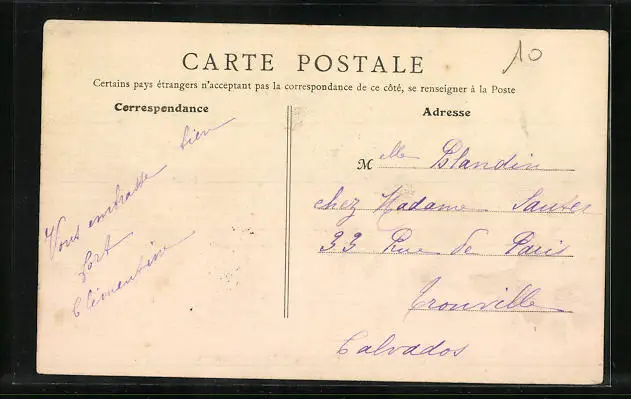 10
CARTE POSTALE
Certains pays étrangers n'acceptant pas la correspondance de ce côté, se renseigner à la Poste
Correspondance
Vous embrasse bien
fort
Clémentine
Adresse
Melle Blandin
chez Madame Sauter
33 Rue de Paris
Trouville
Calvados